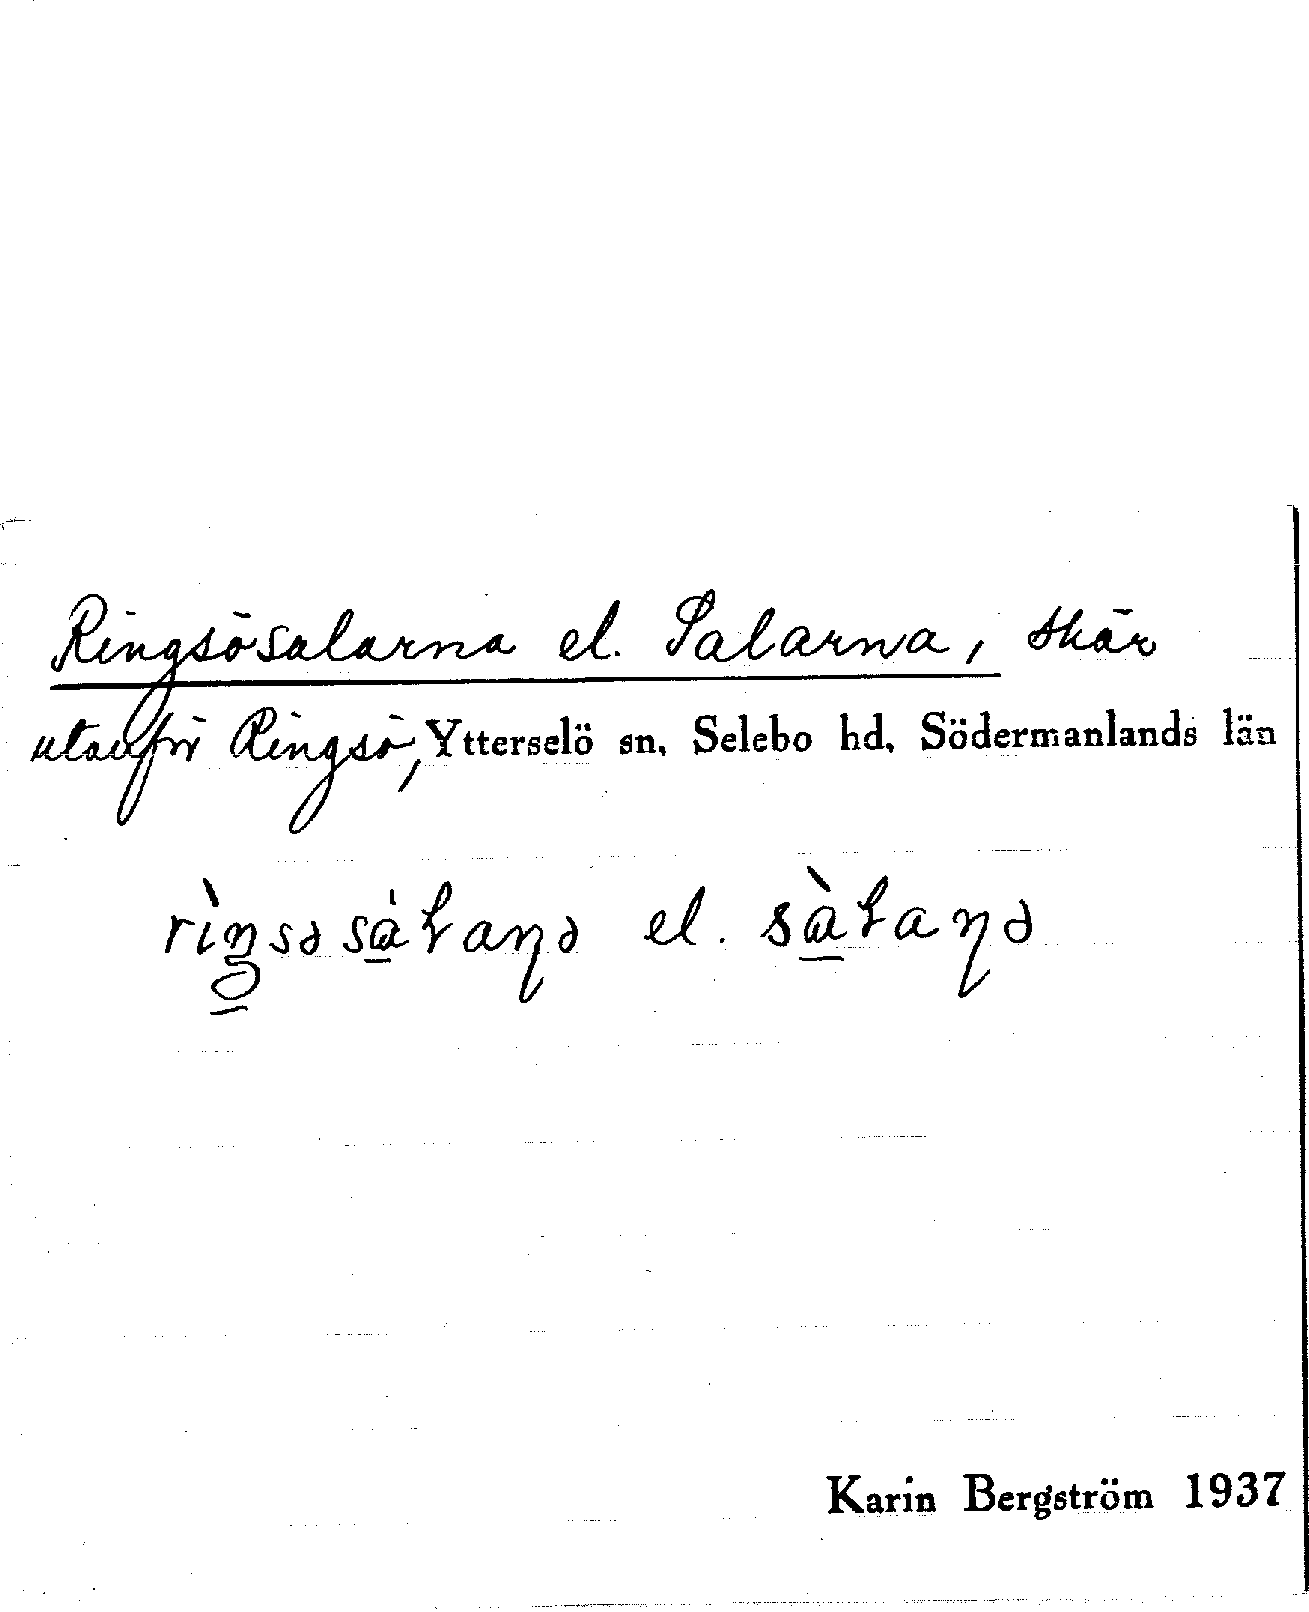 Ringsösalarna el. Salarna, skär
utanför Ringsö, Ytterselö sn, Selebo hd, Södermanlands län
el.
Karin Bergström 1937